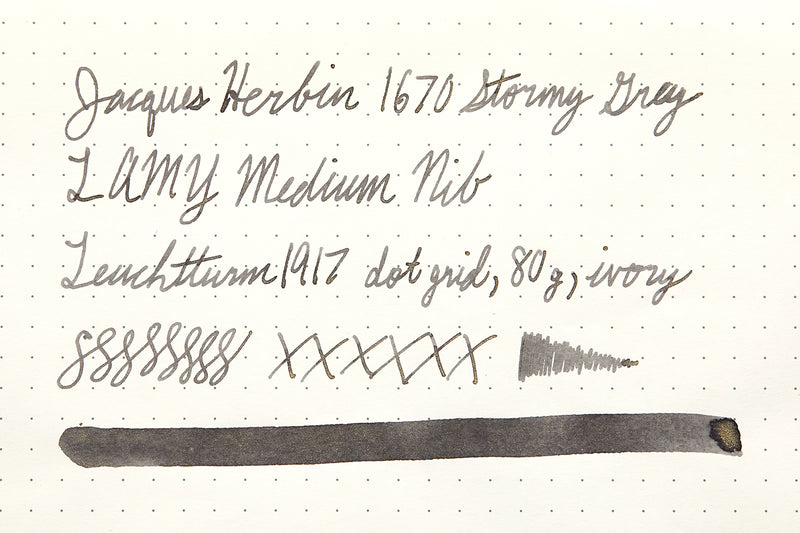 Jacques Herbin 1670 Stormy Grey
LAMY Medium Nib
Leuchtturm1917 dot grid, 80g, ivory